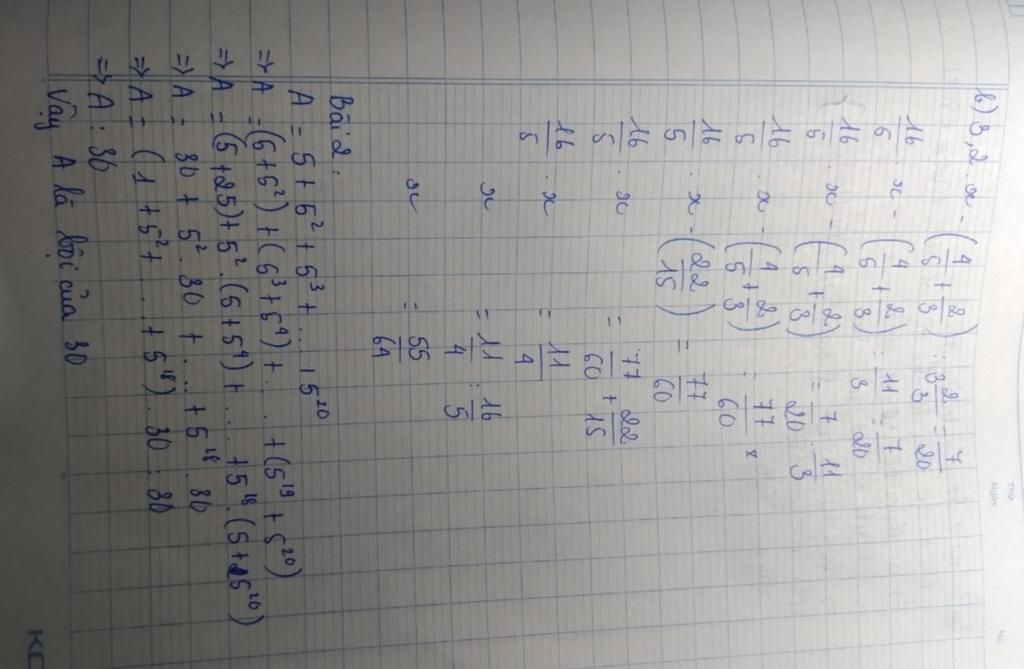 Thứ
Ngày
No.
b) 3,2 . x - (4/5 + 2/3) : 3 2/3 = 7/20
16/5 . x - (4/5 + 2/3) : 11/3 = 7/20
16/5 . x - (4/5 + 2/3) = 7/20 . 11/3
16/5 . x - (4/5 + 2/3) = 77/60
16/5 . x - (22/15) = 77/60
16/5 . x = 77/60 + 22/15
16/5 . x = 11/4
x = 11/4 : 16/5
x = 55/64
Bài 2:
A = 5 + 5² + 5³ + ... + 5²⁰
=> A = (5 + 5²) + (5³ + 5⁴) + ... + (5¹⁹ + 5²⁰)
=> A = (5 + 25) + 5² . (5 + 5⁴) + .... + 5¹⁸ . (5 + 25²⁰)
=> A = 30 + 5² . 30 + ... + 5¹⁸ . 30
=> A = (1 + 5² + .... + 5¹⁸) . 30 ⋮ 30
=> A ⋮ 30
Vậy A là bội của 30
KC